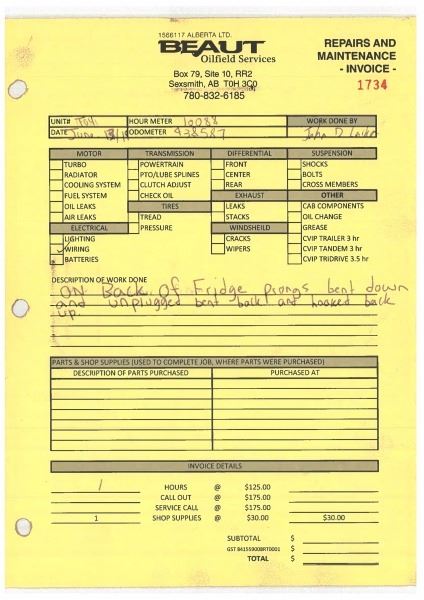 1566117 ALBERTA LTD.
BEAUT
Oilfield Services
Box 79, Site 10, RR2
Sexsmith, AB T0H 3C0
780-832-6185
REPAIRS AND
MAINTENANCE
- INVOICE -
1734
UNIT# HOUR METER 10088 WORK DONE BY
DATE June ODOMETER 438587 John D
MOTOR TRANSMISSION DIFFERENTIAL SUSPENSION
TURBO POWERTRAIN FRONT SHOCKS
RADIATOR PTO/LUBE SPLINES CENTER BOLTS
COOLING SYSTEM CLUTCH ADJUST REAR CROSS MEMBERS
FUEL SYSTEM CHECK OIL EXHAUST OTHER
OIL LEAKS TIRES LEAKS CAB COMPONENTS
AIR LEAKS TREAD STACKS OIL CHANGE
ELECTRICAL PRESSURE WINDSHEILD GREASE
LIGHTING CRACKS CVIP TRAILER 3 hr
WIRING WIPERS CVIP TANDEM 3 hr
BATTERIES CVIP TRIDRIVE 3.5 hr
DESCRIPTION OF WORK DONE
ON Back Of Fridge prongs bent down
and unplugged bent back and hooked back
up.
PARTS & SHOP SUPPLIES (USED TO COMPLETE JOB, WHERE PARTS WERE PURCHASED)
DESCRIPTION OF PARTS PURCHASED PURCHASED AT
INVOICE DETAILS
1 HOURS @ $125.00
CALL OUT @ $175.00
SERVICE CALL @ $175.00
1 SHOP SUPPLIES @ $30.00 $30.00
SUBTOTAL $
GST 841559008RT0001 $
TOTAL $